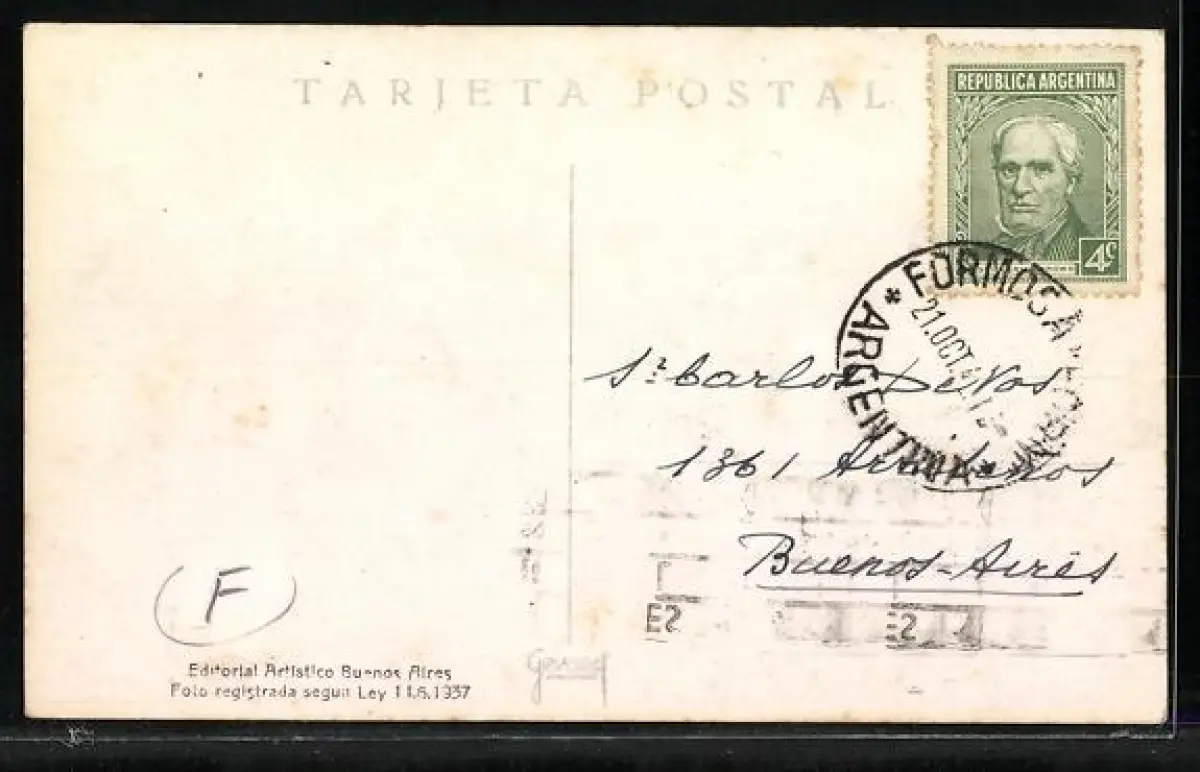 TARJETA POSTAL
REPUBLICA ARGENTINA
4c
* FORMOSA
21.OCT
ARGENTINA *
Sr. Carlos De Vos
1361
Buenos-Aires
E2
E2
F
Editorial Artistico Buenos Aires
Foto registrada segun Ley 11.6.1937